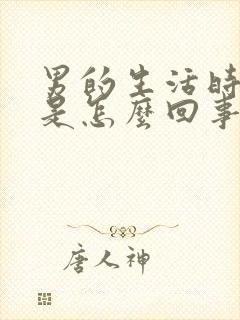 男的生活時
是怎麼回事
唐人神